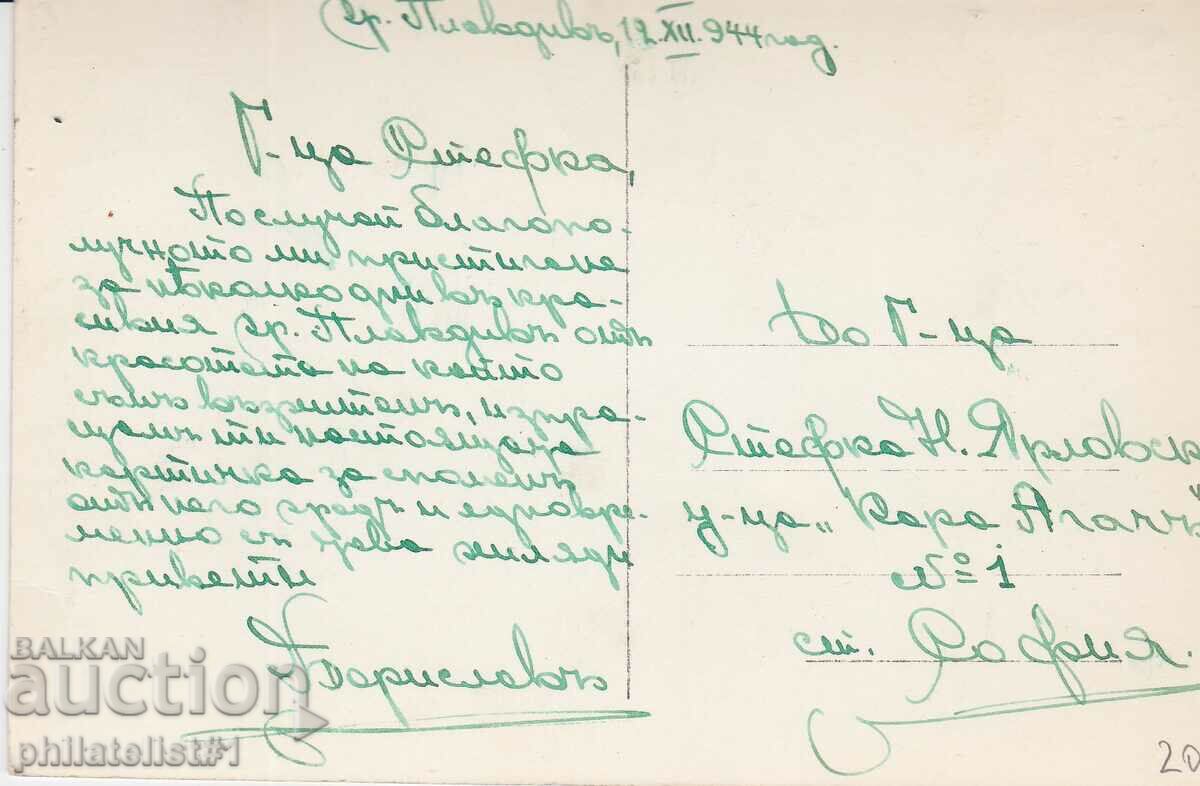 гр. Пловдивъ, 12.XII.944 год.
Г-ца Стефка,
По случай благопо-
лучното ми пристигане
за нѣколко дни въ кра-
сивия гр. Пловдивъ отъ
красотата на който
съмъ възхитенъ, изпра-
щамъ ти настоящата
картичка за споменъ
отъ него градъ и едновре-
менно съ това хиляди
привети
Бориславъ
До Г-ца
Стефка Н. Ярловск
у-ца „Кара Агачъ“
№ 1
ст. София.
BALKAN
auction
philatelist#1
20